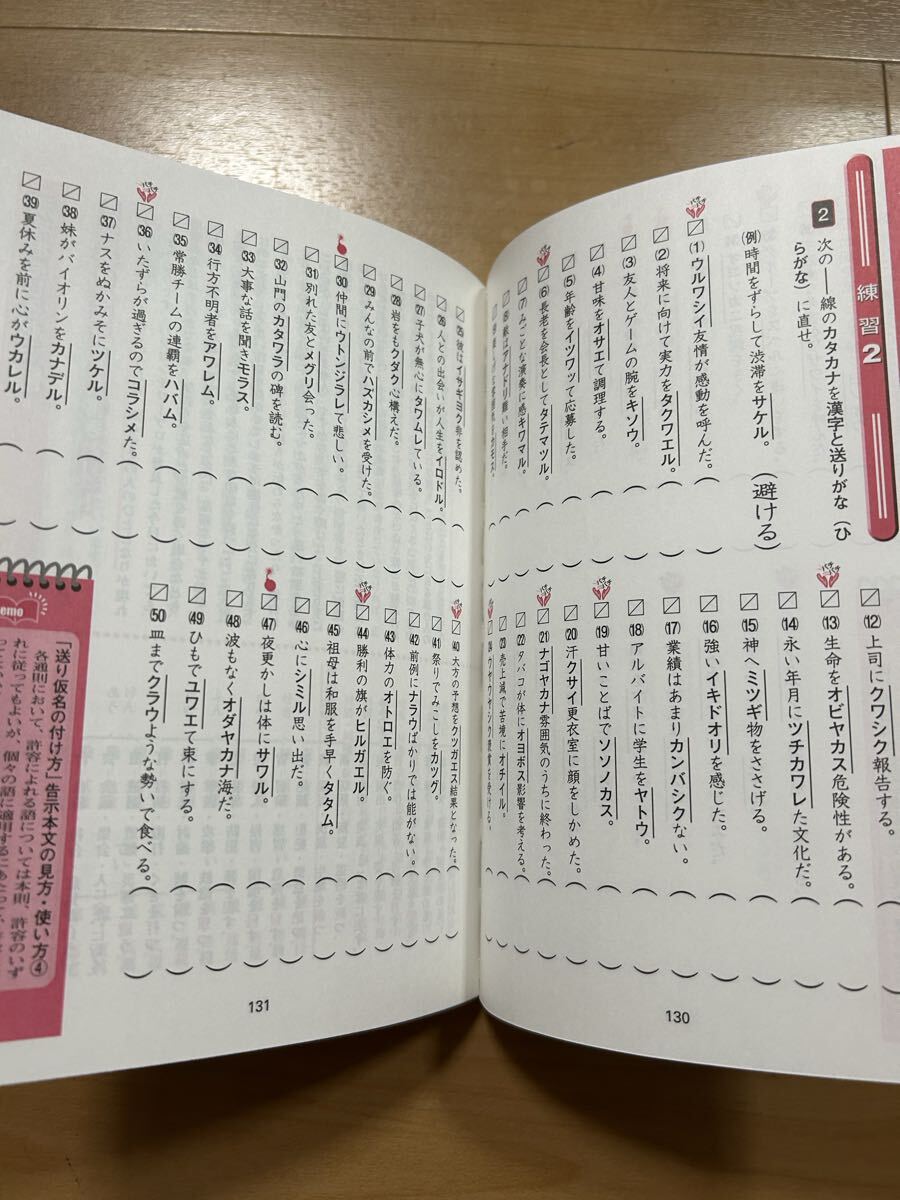 練習2
2 次の――線のカタカナを漢字と送りがな（ひ
らがな）に直せ。
(例) 時間をずらして渋滞をサケル。（避ける）
(1) ウルワシイ友情が感動を呼んだ。（ ）
(2) 将来に向けて実力をタクワエル。（ ）
(3) 友人とゲームの腕をキソウ。（ ）
(4) 甘味をオサエて調理する。（ ）
(5) 年齢をイツワッて応募した。（ ）
(6) 長老を会長としてタテマツル。（ ）
(7) みごとな演奏に感キワマル。（ ）
(8) 敵はアナドリ難い相手だ。（ ）
(12) 上司にクワシク報告する。（ ）
(13) 生命をオビヤカス危険性がある。（ ）
(14) 永い年月にツチカワレた文化だ。（ ）
(15) 神へミツギ物をささげる。（ ）
(16) 強いイキドオリを感じた。（ ）
(17) 業績はあまりカンバシクない。（ ）
(18) アルバイトに学生をヤトウ。（ ）
(19) 甘いことばでソソノカス。（ ）
(20) 汗クサイ更衣室に顔をしかめた。（ ）
(21) ナゴヤカナ雰囲気のうちに終わった。（ ）
(22) タバコが体にオヨボス影響を考える。（ ）
(23) 売上減で苦境にオチイル。（ ）
130
(25) 彼はイサギヨク非を認めた。（ ）
(26) 人との出会いが人生をイロドル。（ ）
(27) 子犬が無心にタワムレている。（ ）
(28) 岩をもクダク心構えだ。（ ）
(29) みんなの前でハズカシメを受けた。（ ）
(30) 仲間にウトンジラレて悲しい。（ ）
(31) 別れた友とメグリ会った。（ ）
(32) 山門のカタワラの碑を読む。（ ）
(33) 大事な話を聞きモラス。（ ）
(34) 行方不明者をアワレム。（ ）
(35) 常勝チームの連覇をハバム。（ ）
(36) いたずらが過ぎるのでコラシメた。（ ）
(37) ナスをぬかみそにツケル。（ ）
(38) 妹がバイオリンをカナデル。（ ）
(39) 夏休みを前に心がウカレル。（ ）
(40) 大方の予想をクツガエス結果となった。（ ）
(41) 祭りでみこしをカツグ。（ ）
(42) 前例にナラウばかりでは能がない。（ ）
(43) 体力のオトロエを防ぐ。（ ）
(44) 勝利の旗がヒルガエル。（ ）
(45) 祖母は和服を手早くタタム。（ ）
(46) 心にシミル思い出だ。（ ）
(47) 夜更かしは体にサワル。（ ）
(48) 波もなくオダヤカナ海だ。（ ）
(49) ひもでユワエて束にする。（ ）
(50) 皿までクラウような勢いで食べる。（ ）
emo
「送り仮名の付け方」告示本文の見方・使い方④
各通則において、許容によれる語については本則、許容のいず
れに従ってもよいが、個々の語に適用するにあたって、
131